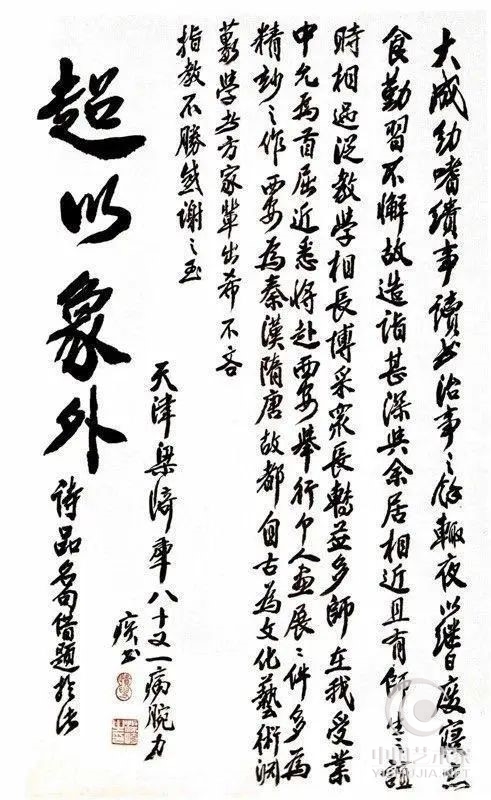 大成幼嗜繢事讀书治事之餘輒夜以繼日廢寢忘
食勤習不懈故造詣甚深與余居相近且有師生誼
時相過從教學相長博采眾長轉益多師在我受業
中允為首屈近悉將赴西安舉行个人畫展展件多為
精妙之作西安為秦漢隋唐故都自古為文化藝術淵
薮學者方家輩出希不吝
指教不勝感謝之至
天津梁崎年八十又一病腕力
疾书
超以象外
詩品名句借題於
中国艺术家